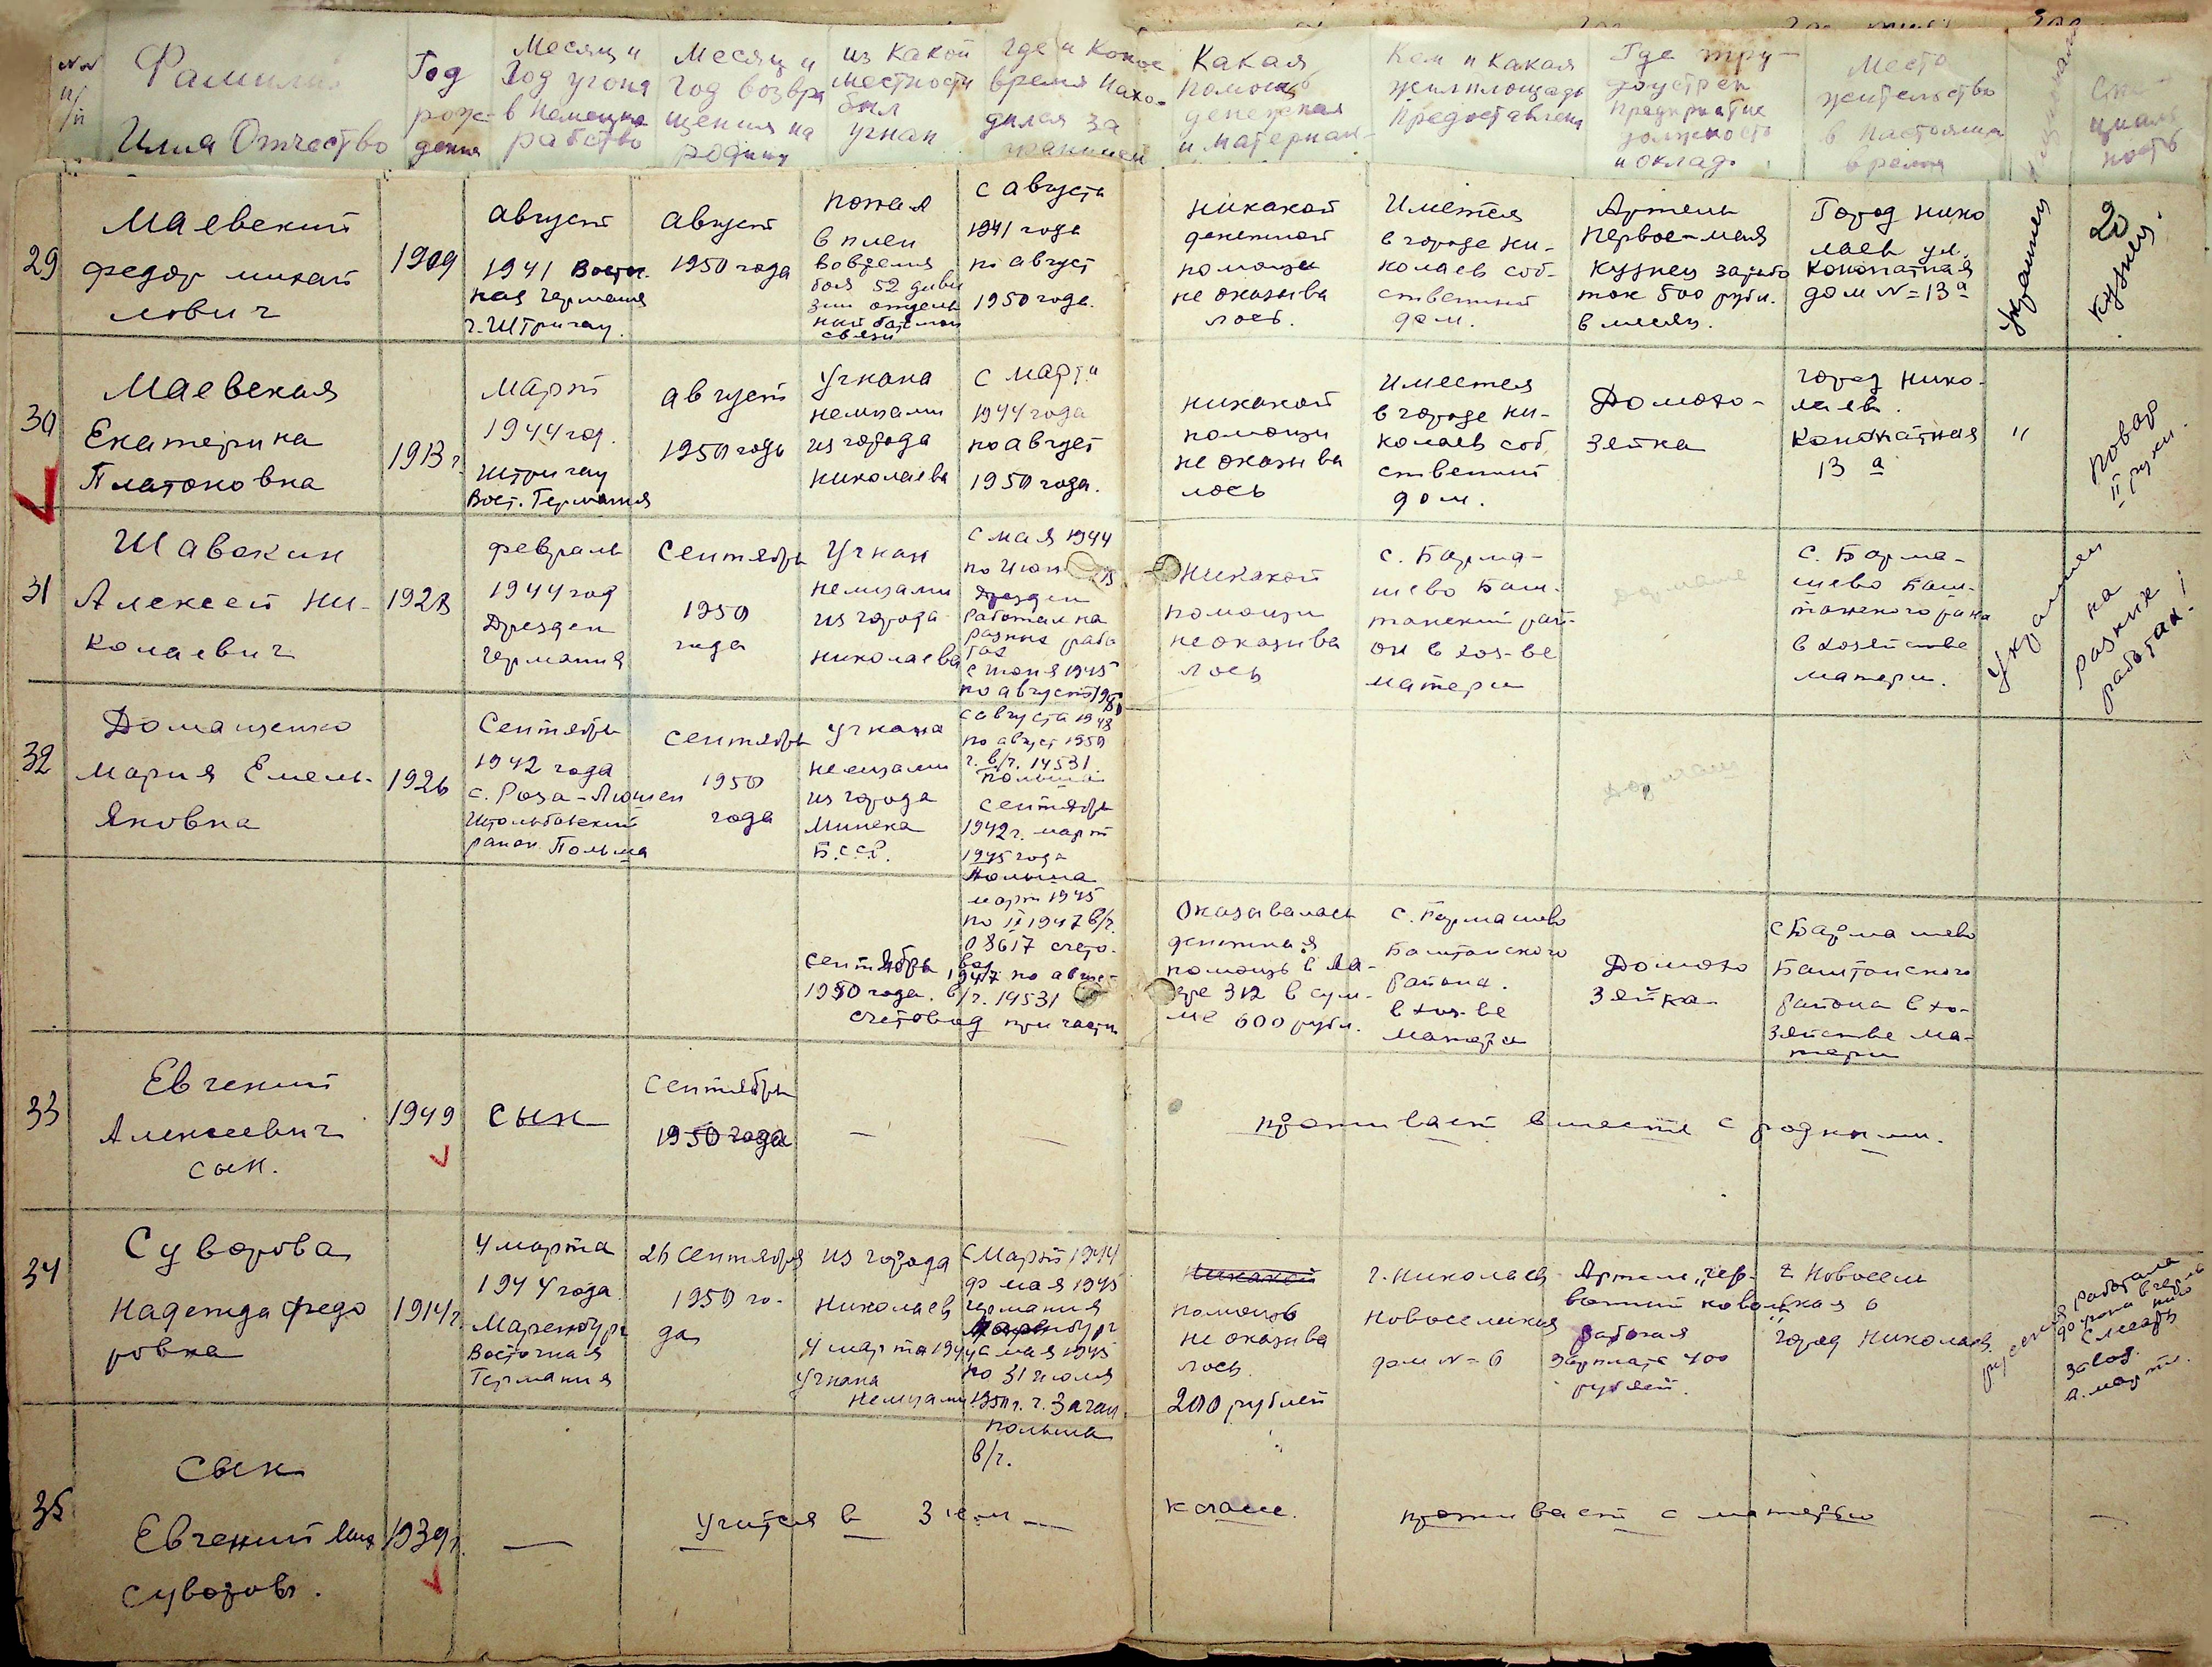 №№ п/п
Фамилия
Имя Отчество
Год
рож-
дения
Месяц и
Год угона
в немецкое
рабство
Месяц и
год возвра
щения на
родину
из какой
местности
был
угнан
где и какое
время нахо-
дился за
границей
Какая
помощь
денежная
и материал-
Кем и какая
жилплощадь
предоставлена
Где тру-
доустроен
предприятие
должность
и оклад.
Место
жительство
в настоящее
время
Спе
циаль
ность
29
Маевский
Федор михай
лович
1909
август
1941 Восточ.
ная германия
г. Штригау.
август
1950 года
попал
в плен
во время
боя 52 диви
зии отдель
ный батальон
связи
с августа
1941 года
по август
1950 года.
никакой
денежной
помощи
не оказыва
лось.
Имеется
в городе Ни-
колаев соб-
ственный
дом.
Артель
Первое-мая
кузнец зарабо
ток 500 рубл.
в месяц.
Город Нико
лаев ул.
Конопатная
дом №=13а
Украинец
20
Кузнец.
30
Маевская
Екатерина
Платоновна
1913 г.
Март
1944 год.
Штригау
Вост. Германия
август
1950 года
Угнана
немцами
из города
николаева
с марта
1944 года
по август
1950 года.
никакой
помощи
не оказыва
лось
Имеется
в городе Ни-
колаев соб
ственный
дом.
Домохо-
зяйка
город Нико-
лаев.
Конопатная
13 а
"
повар
II руки.
31
Шавокин
Алексей Ни-
колаевич
1923
февраль
1944 год
Дрезден
германия
Сентябрь
1950
года
Угнан
немцами
из города
николаева
с мая 1944
по июн
Дрезден
Работал на
разных рабо
тах
с июня 1945
по август 1950
Никакой
помощи
не оказыва
лось
с. Барма-
шево Баш-
танский рай-
он в хоз-ве
матери
с. Барма-
шево Баш-
танского р-на
в хозяйстве
матери.
Украинец
на
разных
работах!
32
Доманченко
Мария Емель-
яновна
1926
Сентябрь
1942 года
с. Роза-Люшен
Штольбовский
район Польша
Сентябрь
1950
года
угнана
немцами
из города
Минска
Б.С.С.Р.
с августа 1948
по август 1950
г. в/ч. 14531
польша
сентябрь
1942 г. март
1945 года
Польша
март 1945
по II 1947 в/ч.
08617 счето-
вод
сентябрь 1947 по август
1950 года. в/ч. 14531
счетовод при части
Оказывалась
денежная
помощь в ла-
гере 312 в сум-
ме 600 рубл.
с. Бармашево
Баштанского
района.
в хоз-ве
матери
Домохо
зяйка
с Бармашево
Баштанского
района в хо-
зяйстве ма-
тери
33
Евгений
Алексеевич
сын.
1949
сын
сентябрь
1950 года
—
—
проживает вместе с родными.
34
Суворова
Надежда Федо
ровна
1914 г
4 марта
1944 года.
Мариенбург
Восточная
Германия
26 сентября
1950 го-
да
из города
николаев
4 марта 1944
угнана
немцами
с Март 1944
до мая 1945
германия
Мариенбург
с мая 1945
по 31 июля
1950 г. г. Заган.
польша
в/ч.
Никакой
помощь
не оказыва
лось.
200 рублей
г. Николаев
Новоселская
дом №=6
Артель „чер-
вонний коваль"
рабочая
зарплата 400
рублей.
2 Новосель
ская 6
город Николаев.
русская
работала
до войны в черно
Слесарь
завод.
а. марти.
35
сын
Евгений
суворов.
1939 г.
—
учится в 3 ем
классе.
проживает с матерью
—